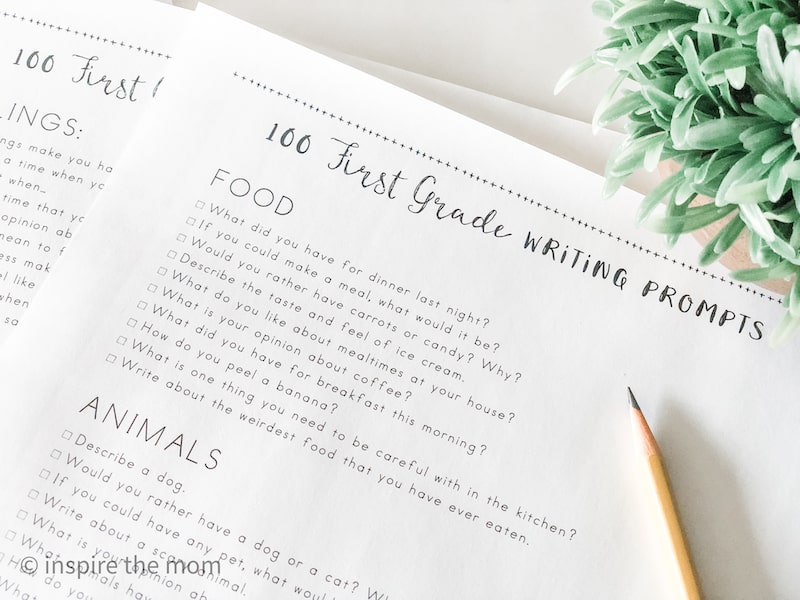 100 First
LINGS:
ngs make you ha
a time when yo
when...
time that yo
opinion ab
mean to f
ess mak
el like
when
sa
100 First Grade WRITING PROMPTS
FOOD
What did you have for dinner last night?
If you could make a meal, what would it be?
Would you rather have carrots or candy? Why?
Describe the taste and feel of ice cream.
What do you like about mealtimes at your house?
What is your opinion about coffee?
What did you have for breakfast this morning?
How do you peel a banana?
What is one thing you need to be careful with in the kitchen?
Write about the weirdest food that you have ever eaten.
ANIMALS
Describe a dog.
Would you rather have a dog or a cat? Wh
If you could have any pet, what would
Write about a scary animal.
What is your opinion abo
What animals have
How do you
What
© inspire the mom